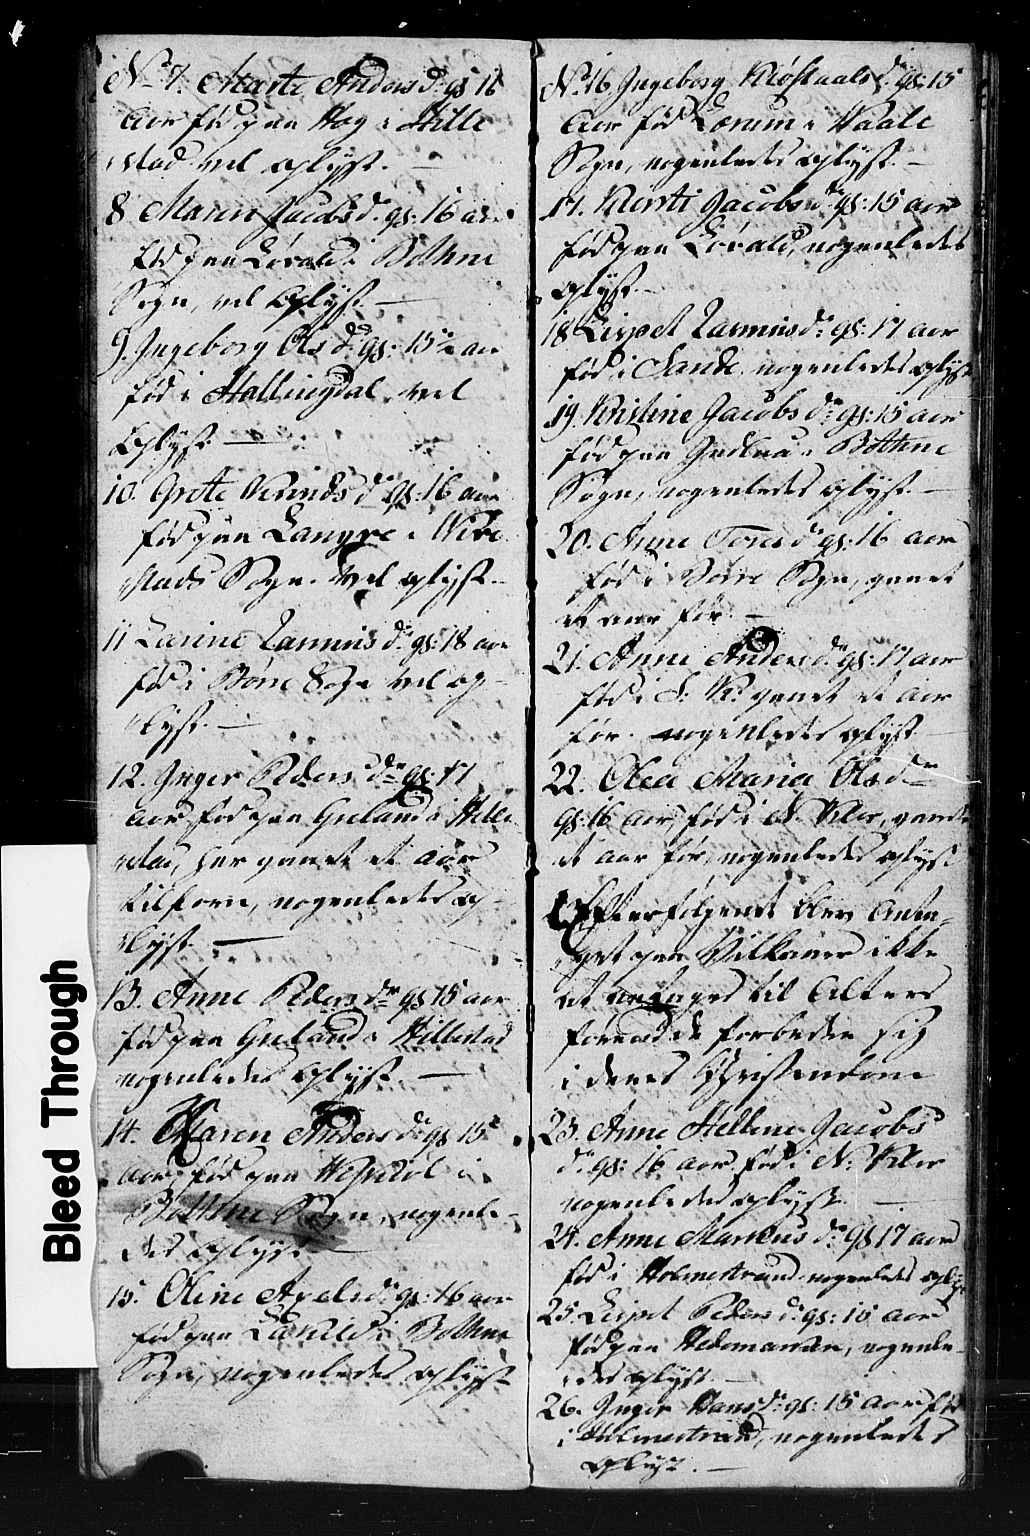 No 7. Marte Anders d: gs 16
aar fød paa Hog i Hille
stad vel oplyst. —
8 Maren Jacobs d: gs: 16 aar
fød paa Løvald i Bothne
Sogn, vel oplyst —
9. Ingeborg Ols d: gs: 15½ aar
fød i Hallingdal, vel
oplyst —
10. Grete Knuds d: gs: 16 aar
fød paa Langøe i Wive
stads Sogn. vel oplyst —
11 Larine Rasmus d: gs: 18 aar
fød i Børre Sogn vel op-
lyst. —
12. Inger Peders d: gs. 17
aar fød paa Greland i Hille
stad, her gaaet et aar
tilforn, nogenledes op-
lyst —
13. Anne Peders d: gs 15 aar
fød paa Greland i Hillestad
nogenledes oplyst —
14. Maren Anders d: gs 15½
aar, fød paa i
Bothne Sogn, nogenle-
des oplyst —
15. Oline Axels d: gs: 16 aar
fød paa i Bothne
Sogn, nogenledes oplyst
No. 16 Ingeborg d: gs: 15
aar fød i Waale
Sogn, nogenledes oplyst. —
17. Kiersti Jacobs d: gs: 15 aar
fød paa Løvald, nogenledes
oplyst —
18 Lispet Rasmus d: gs: 17 aar
fød i Sande nogenledes oplyst
19. Kristine Jacobs d: gs: 15 aar
fød paa i Bothne
Sogn, nogenledes oplyst —
20. Anne Tores d: gs: 16 aar
fød i Borre Sogn, gaaet
et aar før —
21. Anne Anders d: gs: 17 aar
fød i S: K: gaaet et aar
før. nogenledes oplyst
22. Olea Maria Ols d:
gs: 16 aar, fød i N. Kler, gaaet
et aar før, nogenledes oplyst
Efterfølgende blev Anta-
get paa Vilkaar ikke
at antages til Alters
førend de forbedre sig
i deres Christendom
23. Anne Hellene Jacobs
d: gs: 16 aar fød i N: Kler
nogenledes oplyst —
24. Anne Markus d: gs 17 aar
fød i Holmestrand nogenledes oplyst
25. Lispet Peders d: gs: 15 aar
fød paa Hedemarken, nogenle-
des oplyst. —
26. Inger Hans d: gs: 15 aar fød
i Holmestrand, nogenledes
oplyst. —
Bleed Through